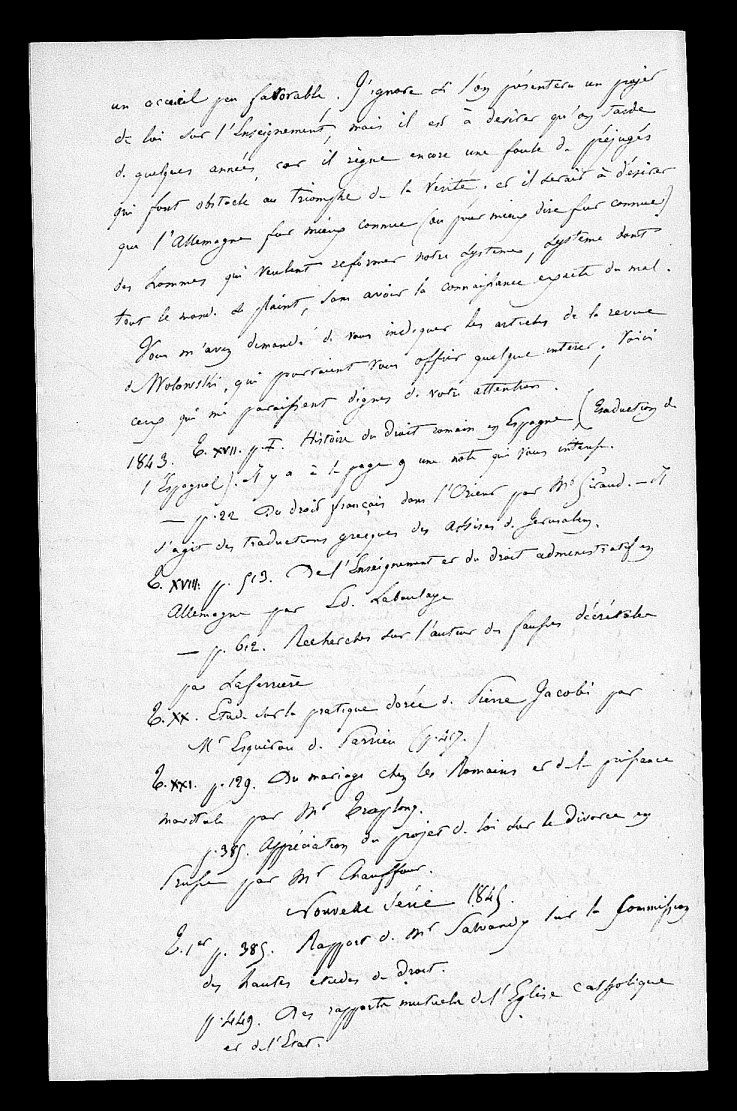 un accueil peu favorable. J'ignore si l'on présentera un projet
de loi sur l'Enseignement, mais il est à desirer qu'on tarde
de quelques années, car il règne encore une foule de préjugés
qui font obstacle au triomphe de la Vérité. et il serait à désirer
que l'Allemagne fut mieux connue (ou pour mieux dire fut connue)
des hommes qui veulent reformer notre système, système dont
tout le monde se plaint, sans avoir la connaissance exacte du mal.
Vous m'avez demandé de vous indiquer les articles de la revue
de Wolowski, qui pourraient vous offrir quelque interet; Voici
ceux qui me paraissent dignes de votre attention.
1843. T. XVII. p. Histoire du Droit romain en Espagne (traduction de
l'Espagnol). Il y a à la page 9 une note qui vous interesse.
— p. 22 Du droit français dans l'Orient par Mr Giraud. — Il
s'agit des traductions grecques des Assises de Jerusalem.
T. XVIII. p. 513. De l'Enseignement et du droit administratif en
Allemagne par Ed. Laboulaye
— p. 612. Recherches sur l'auteur des fausses décrétales
par Laferrière
T. XX. Etud. sur la pratique dorée de Pierre Jacobi par
Mr Esquirou de Parrieu (p. 417.)
T. XXI. p. 129. Du mariage chez les Romains et de la puissance
maritale par Mr Troplong.
p. 385. Appréciation du projet de loi sur le divorce en
Prusse par Mr Chauffour.
Nouvelle Série 1845.
T. 1er p. 385. Rapport de Mr Salvandy sur la Commission
des hautes etudes de Droit.
p. 449. Des rapports mutuels de l'Eglise catholique
et de l'Etat.